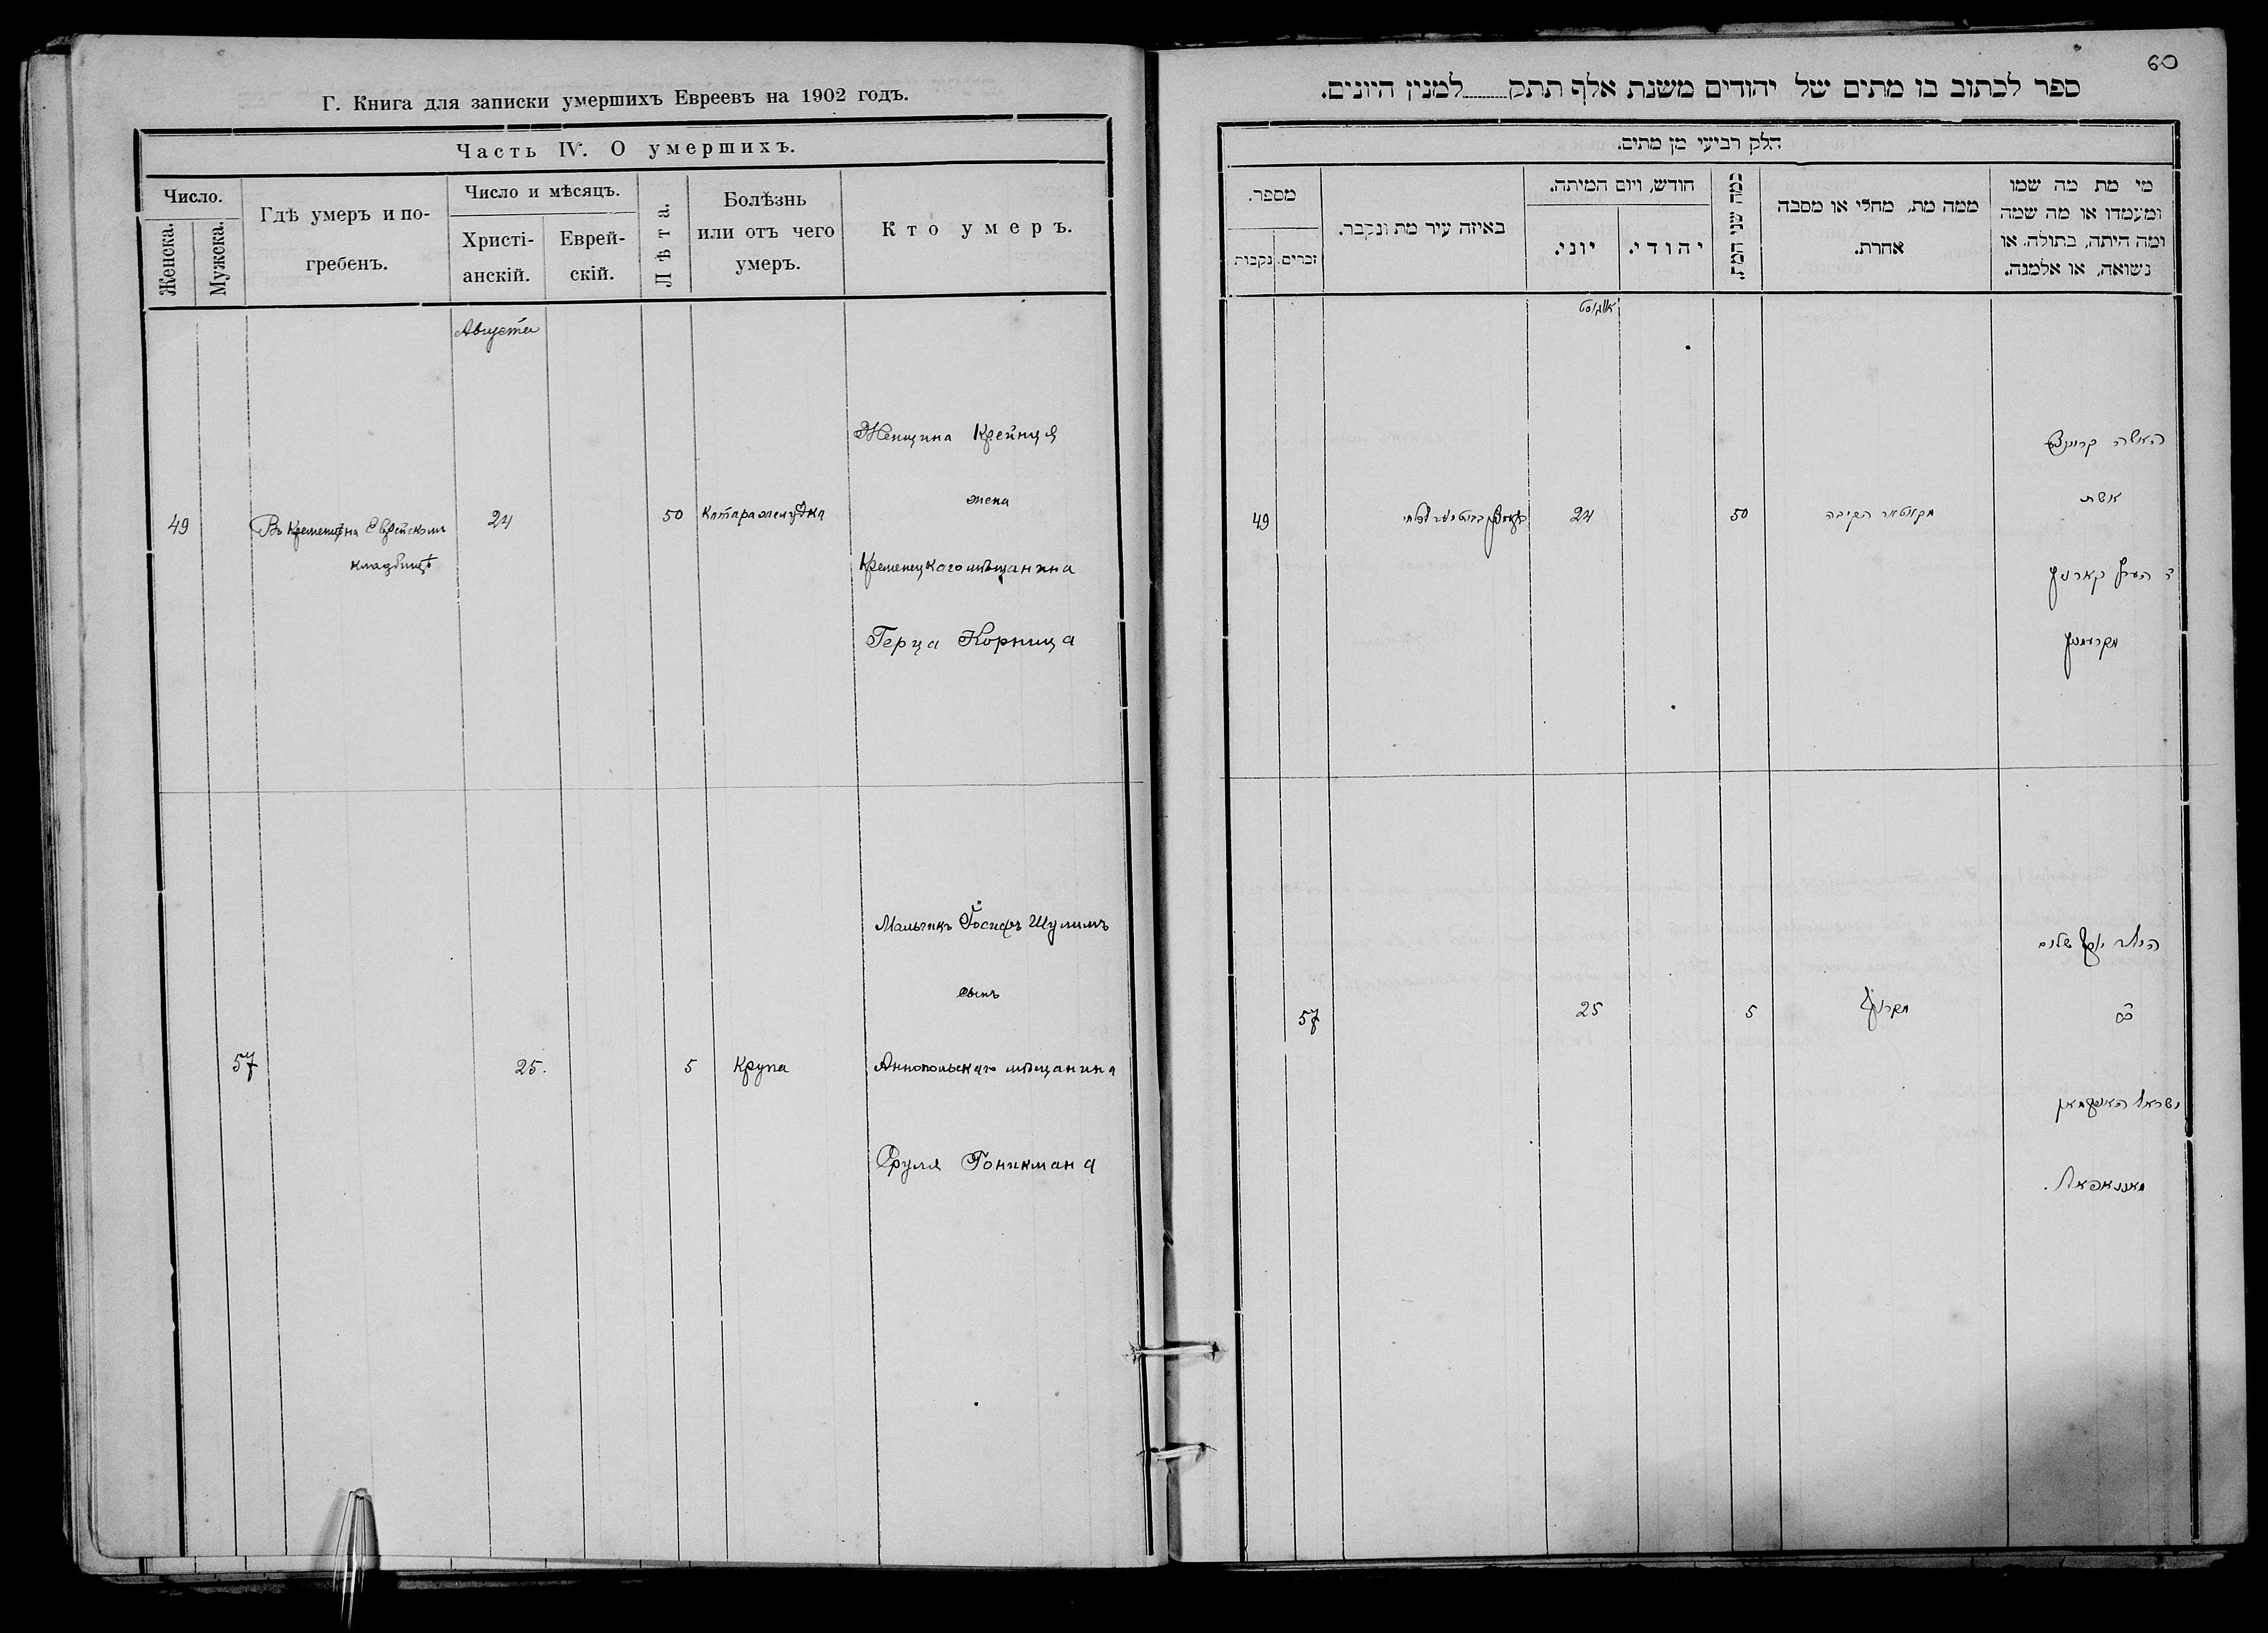 Г. Книга для записки умершихъ Евреевъ на 1902 годъ.
Часть IV. О умершихъ.
Число.
Женска.
Мужска.
Гдѣ умеръ и по-
гребенъ.
Число и мѣсяцъ.
Христі-
анскій.
Еврей-
скій.
Лѣта.
Болѣзнь
или отъ чего
умеръ.
Кто умеръ.
Августа
49
Въ Кременцѣ на Еврейскомъ
кладбищѣ
24
50
Катара желудка
Женщина Крейнця
жена
Кременецкого мѣщанина
Герца Корница
57
25.
5
Крупа
Мальчикъ Іосифъ Шулимъ
сынъ
Аннопольскаго мѣщанина
Сруля Гоникмана
60
ספר לכתוב בו מתים של יהודים משנת אלף תתק למנין היונים.
חלק רביעי מן מתים.
מספר.
נקבות
זכרים.
באיזה עיר מת ונקבר.
חודש, ויום המיתה.
יוני.
יהודי.
כמה שני המת.
ממה מת, מחלי או מסבה
אחרת.
מי מת מה שמו
ומעמדו או מה שמה
ומה היתה, בתולה, או
נשואה, או אלמנה.
אוגוסט
49
24
50
האשה
אשת
57
25
5
הילד יוסף שלום
בן
ישראל